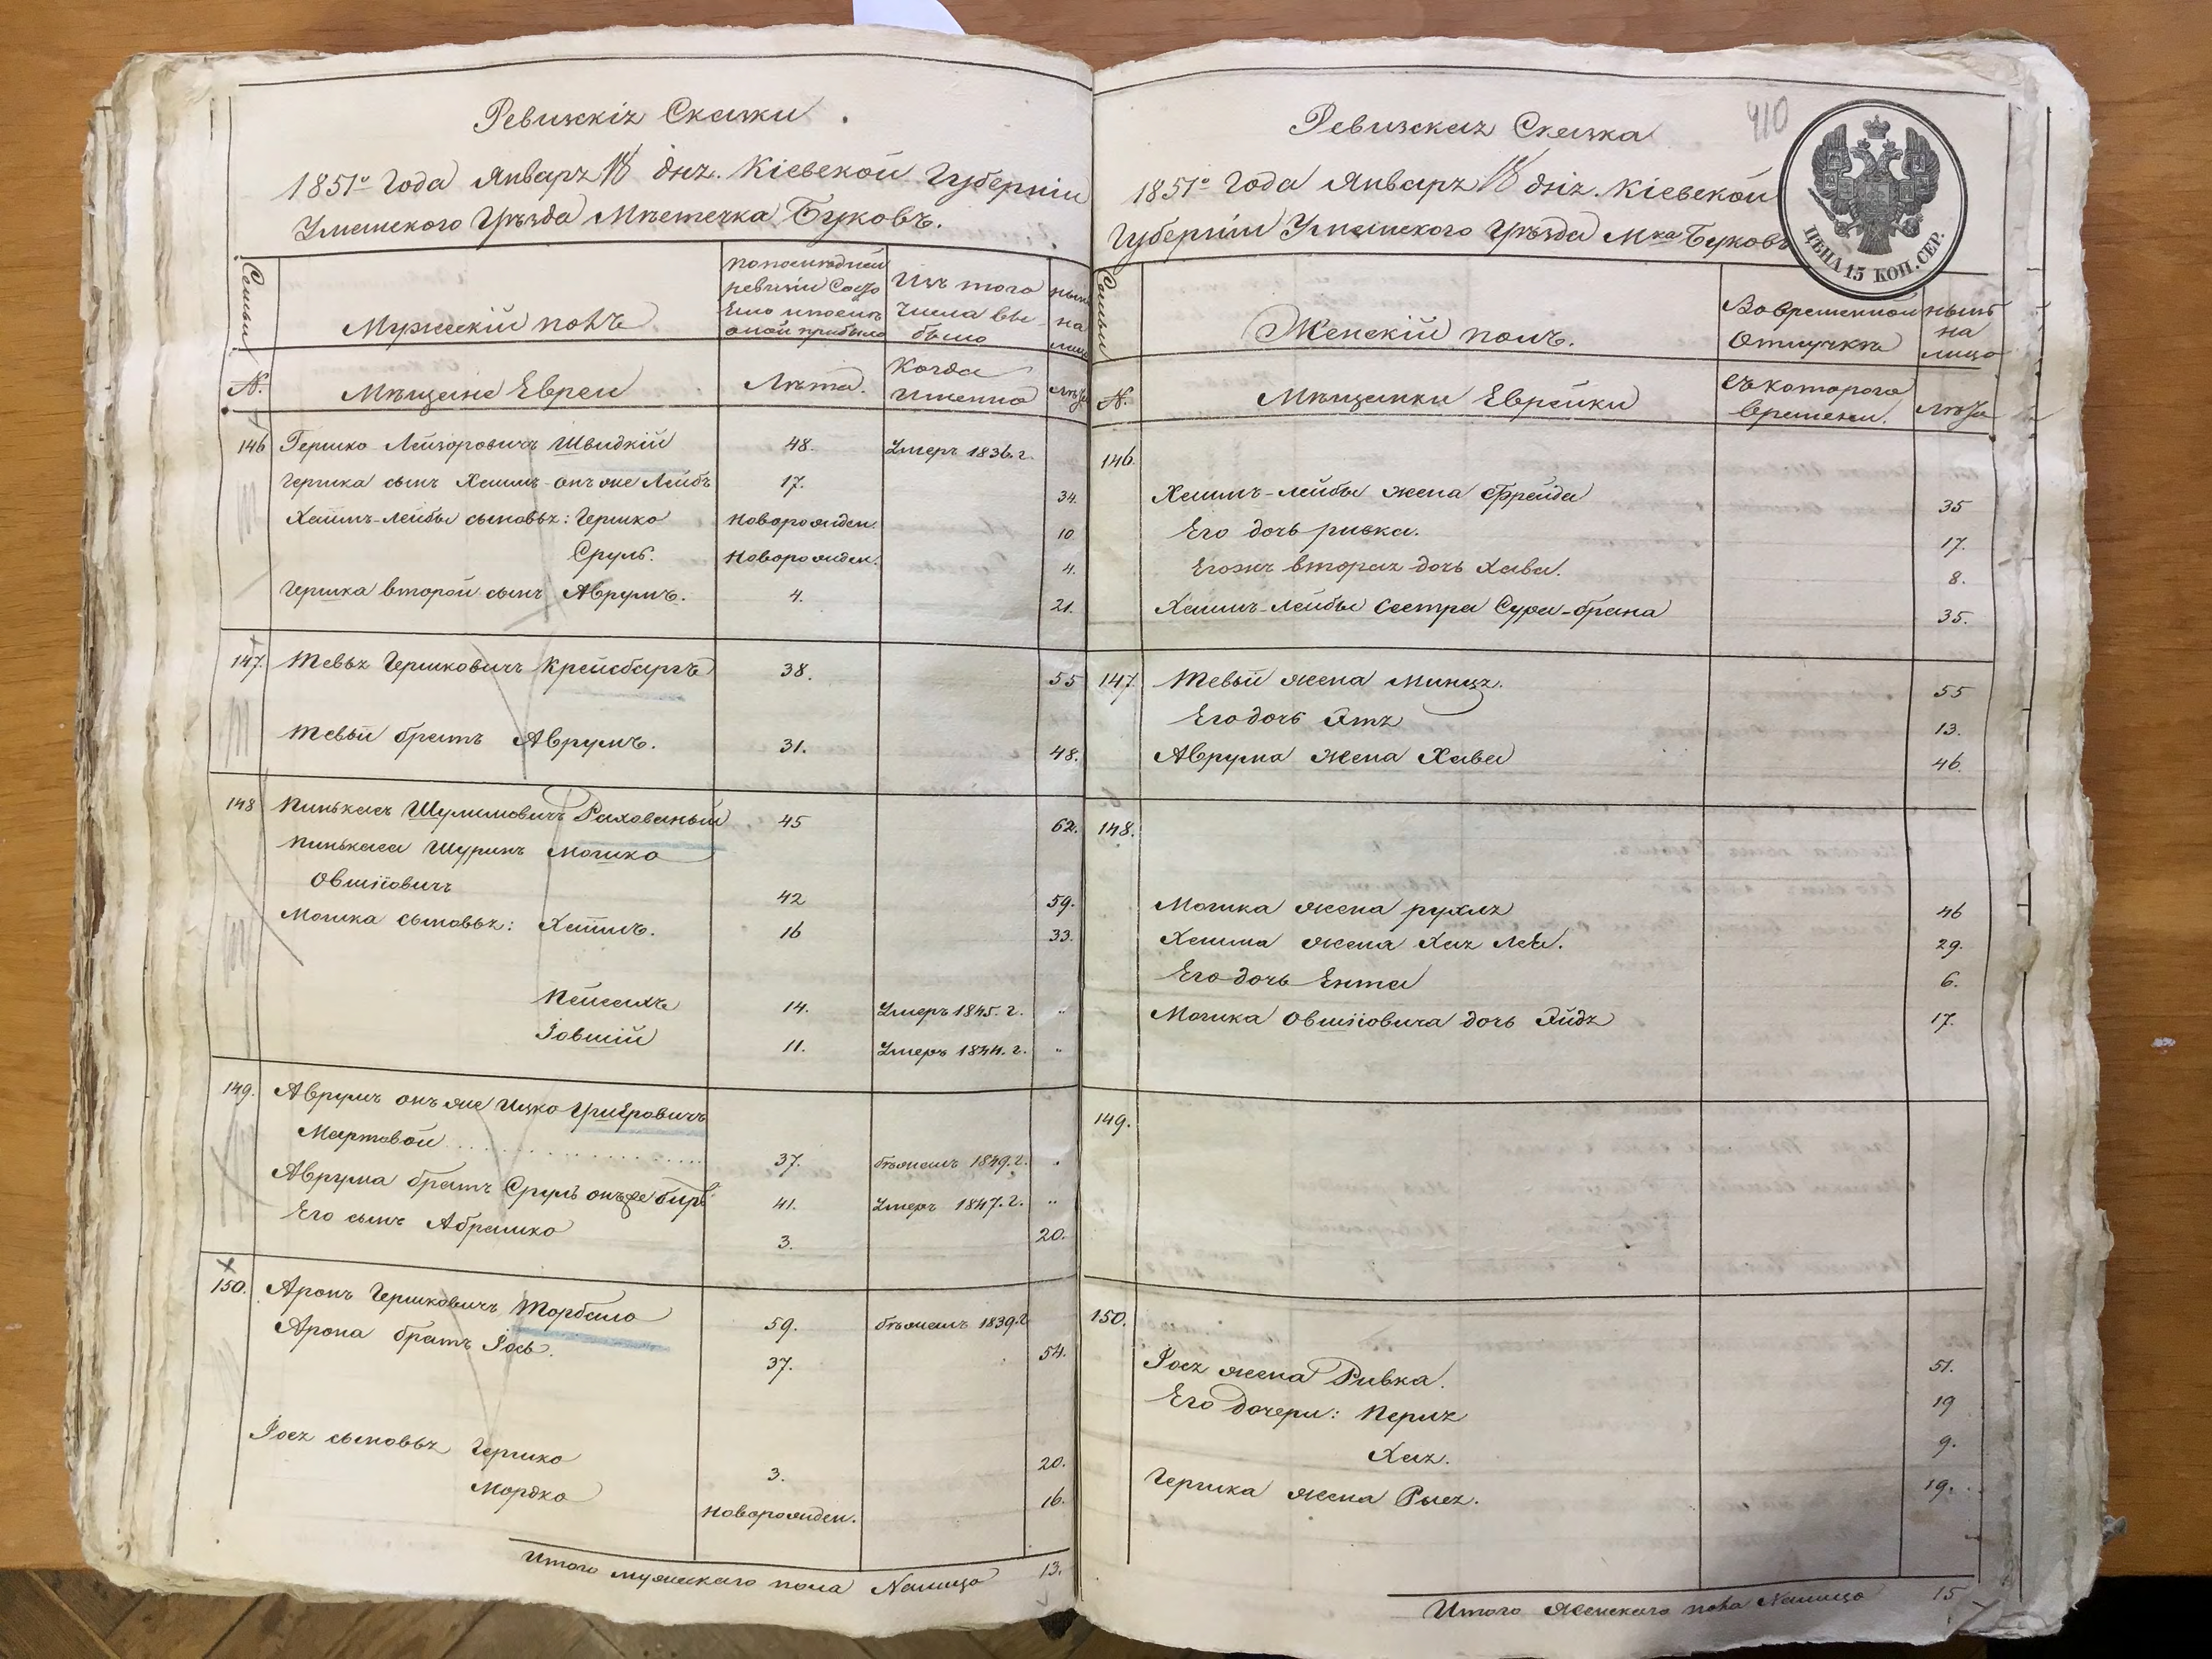 Ревизскія Сказки.
1851го Года Января 18 дня. Кіевской Губерніи
Уманского Уѣзда Мѣстечка Буковъ.
Семьи
Мужескій полъ
по последней
ревизіи Состо
было
Изъ того
числа вы
было
ныне
на
лицо
№.
Мѣщане Евреи
Лѣта.
Когда
именно
Лѣта
146 Гершко Лейзоровичъ Швидкій 48. Умеръ 1836. г.
Гершка сынъ Хаимъ-онъ же Лейбъ 17. 34.
Хаимъ-Лейбы сыновья: Гершко новорожден. 10
Сруль. новорожден. 4.
Гершка второй сынъ Аврумъ. 4. 21.
147. Тевья Гершковичъ Крейсбаргъ 38. 55
Тевьи братъ Аврумъ. 31. 48.
148 Пинькасъ Шулимовичъ Рахованый 45 62.
Пинькаса Шуринъ Мошко
Овшіевичъ 42 59.
Мошка сыновья: Хаимъ. 16 33.
Пейсахъ 14. Умеръ 1845. г. "
Іовшій 11. Умеръ 1844. г. "
149. Аврумъ онъ же Ицко
Мартовой 37. бѣжалъ 1849. г. "
Аврума братъ Сруль онъ же Беръ 41. Умеръ 1847. г. "
Его сынъ Абрамко 3. 20.
150. Аронъ Гершковичъ Торбало 59. бѣжалъ 1839. г
Арона братъ Іось. 37. 54.
Іося сыновья Гершко 3. 20.
Мордко новорожден. 16.
Итого мужескаго пола Налицо 13.
Ревизская Сказка
410
1851го Года Января 18 дня. Кіевской
Губерніи Уманского Уѣзда Мка Буковъ
ЦѢНА 15 КОП. СЕР.
Семьи
Женскій полъ.
Во временной
отлучкѣ
нынѣ
на
лицо
№.
Мѣщанки Еврейки
съ котораго
времени.
лѣта
146.
Хаимъ-Лейбы жена Фрейда 35
Его дочь ривка. 17.
Егожъ вторая дочь Хава. 8.
Хаимъ-Лейбы сестра Сура-брана 35.
147. Тевьи жена Минця. 55
Его дочь Этя 13.
Аврума жена Хава 46.
148.
Мошка жена рухля 46
Хаима жена Хая Лея. 29.
Его дочь Ента 6.
Мошка Овшіовича дочь Эйдя 17.
149.
150.
Іося жена Ривка. 51.
Его дочери: Перля 19
Хая. 9.
Гершка жена Рыся. 19.
Итого Женскаго пола Налицо 15